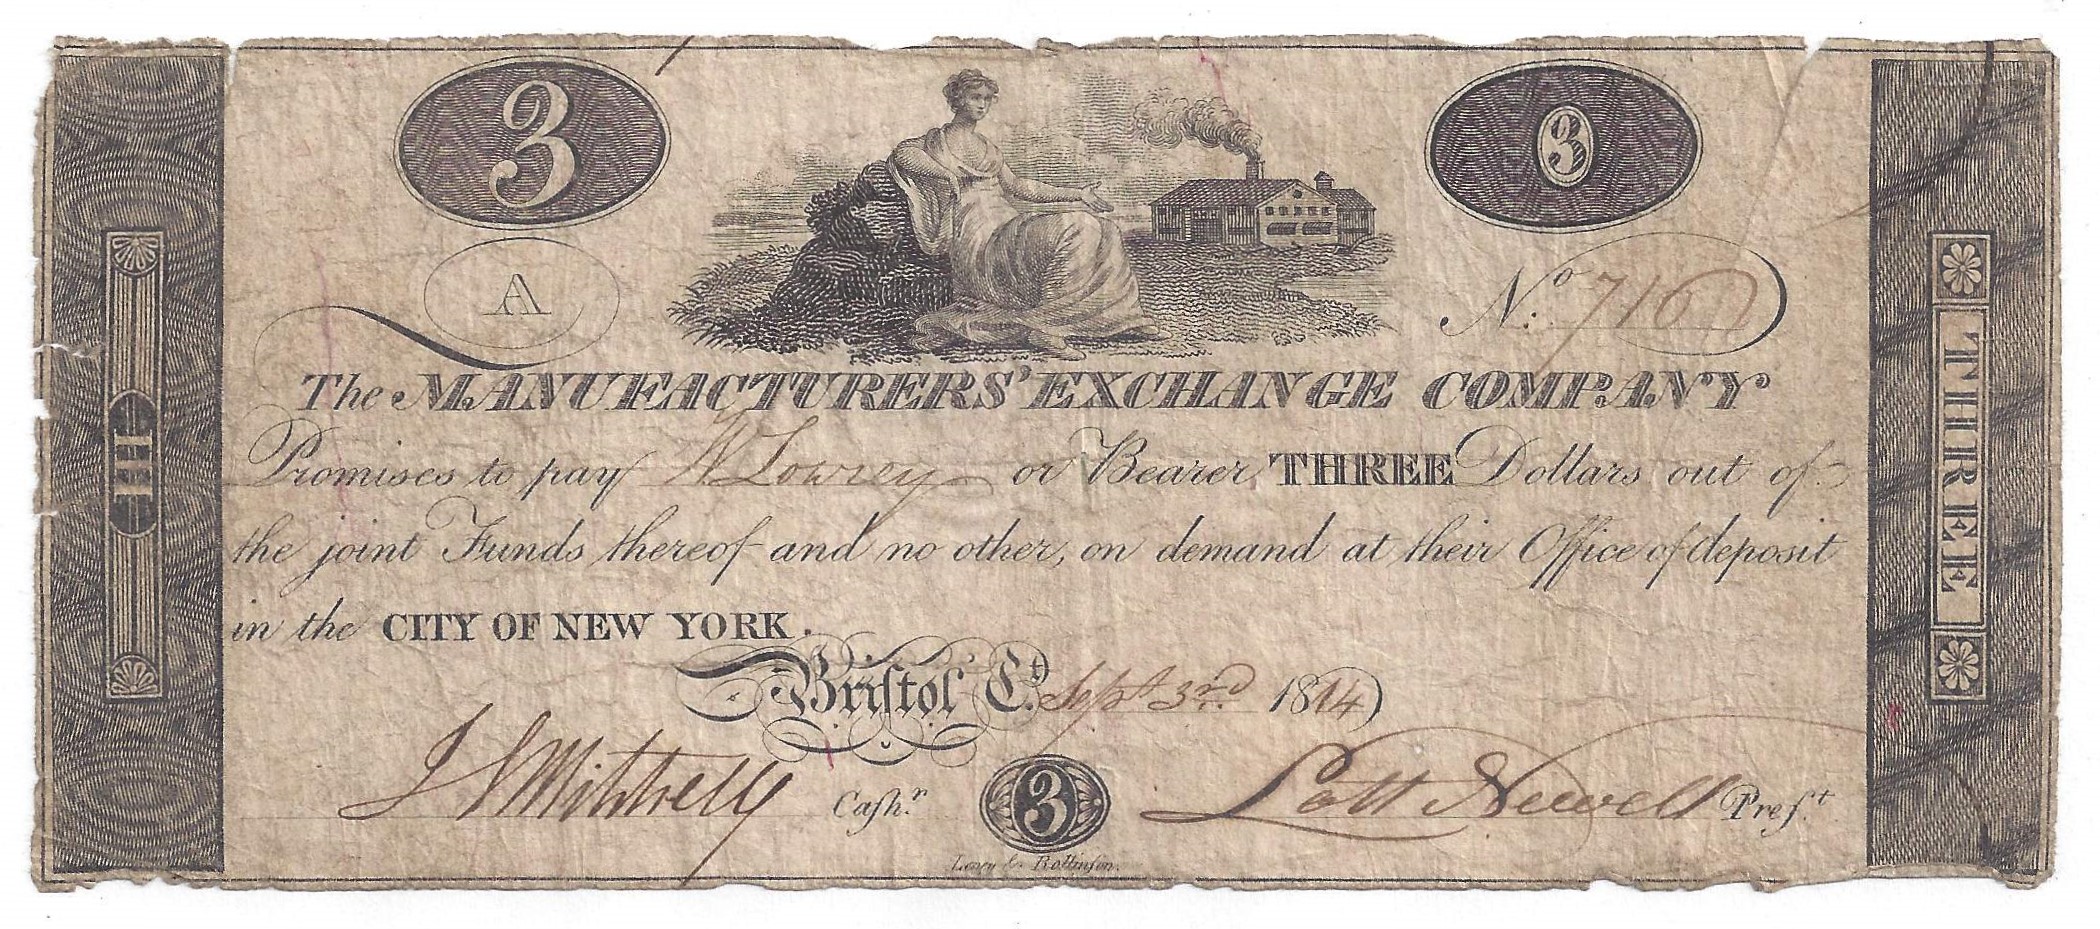 3 3
A
No. 716
The MANUFACTURERS' EXCHANGE COMPANY
Promises to pay W Lowrey or Bearer, THREE Dollars out of
the joint Funds thereof and no other, on demand at their Office of deposit
in the CITY OF NEW YORK.
Bristol Ct. Sept 3rd 1814
J S Mitchell Cashr. 3 Lott Newell Prest
Leney & Rollinson.
III
THREE